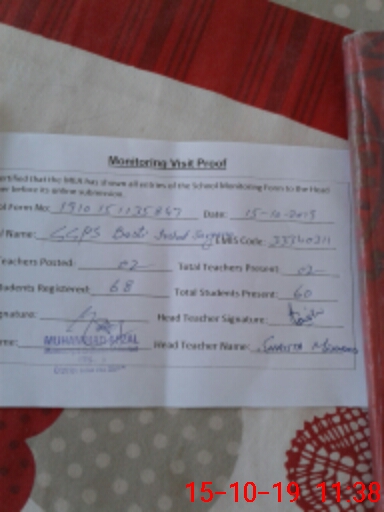 Monitoring Visit Proof
ertified that the MEA has shown all entries of the School Monitoring Form to the Head
er before its online submission.
ol Form No: 1910151135847 Date: 15-10-2019
l Name: GGPS Basti EMIS Code: 33340211
Teachers Posted: 02 Total Teachers Present: 02
tudents Registered: 68 Total Students Present: 60
gnature: Head Teacher Signature:
MUHAMMAD
Head Teacher Name:
15-10-19 11:38